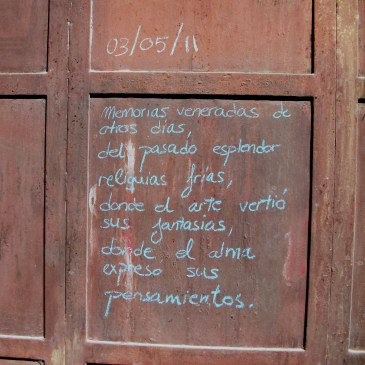 03/05/11
Memorias veneradas de
otros días,
del pasado esplendor
reliquias frías,
donde el arte vertió
sus fantasías,
donde el alma
expreso sus
pensamientos.